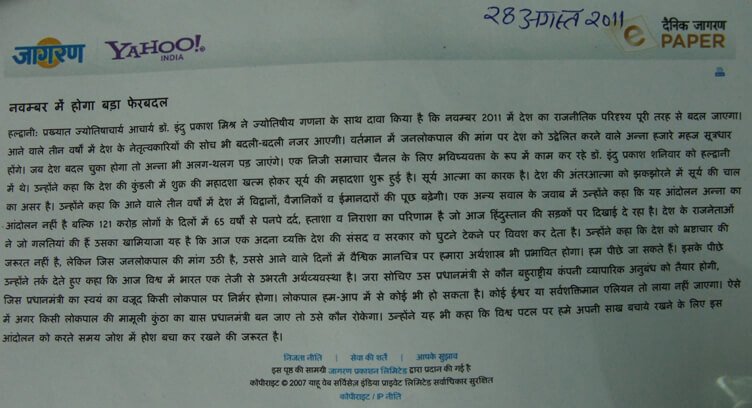 28 अगस्त 2011
जागरण YAHOO! INDIA
दैनिक जागरण
e PAPER
नवम्बर में होगा बड़ा फेरबदल
हल्द्वानी: प्रख्यात ज्योतिषाचार्य आचार्य डॉ. इंदु प्रकाश मिश्र ने ज्योतिषीय गणना के साथ दावा किया है कि नवम्बर 2011 में देश का राजनीतिक परिदृश्य पूरी तरह से बदल जाएगा।
आने वाले तीन वर्षों में देश के नेतृत्वकारियों की सोच भी बदली-बदली नजर आएगी। वर्तमान में जनलोकपाल की मांग पर देश को उद्वेलित करने वाले अन्ना हजारे महज सूत्रधार
होंगे। जब देश बदल चुका होगा तो अन्ना भी अलग-थलग पड़ जाएंगे। एक निजी समाचार चैनल के लिए भविष्यवक्ता के रूप में काम कर रहे डॉ. इंदु प्रकाश शनिवार को हल्द्वानी
में थे। उन्होंने कहा कि देश की कुंडली में शुक्र की महादशा खत्म होकर सूर्य की महादशा शुरू हुई है। सूर्य आत्मा का कारक है। देश की अंतरआत्मा को झकझोरने में सूर्य की चाल
का असर है। उन्होंने कहा कि आने वाले तीन वर्षों में देश में विद्वानों, वैज्ञानिकों व ईमानदारों की पूछ बढ़ेगी। एक अन्य सवाल के जवाब में उन्होंने कहा कि यह आंदोलन अन्ना का
आंदोलन नहीं है बल्कि 121 करोड़ लोगों के दिलों में 65 वर्षों से पनपे दर्द, हताशा व निराशा का परिणाम है जो आज हिंदुस्तान की सड़कों पर दिखाई दे रहा है। देश के राजनेताओं
ने जो गलतियां की हैं उसका खामियाजा यह है कि आज एक अदना व्यक्ति देश की संसद व सरकार को घुटने टेकने पर विवश कर देता है। उन्होंने कहा कि देश को भ्रष्टाचार की
जरूरत नहीं है, लेकिन जिस जनलोकपाल की मांग उठी है, उससे आने वाले दिनों में वैश्विक मानचित्र पर हमारा अर्थशास्त्र भी प्रभावित होगा। हम पीछे जा सकते हैं। इसके पीछे
उन्होंने तर्क देते हुए कहा कि आज विश्व में भारत एक तेजी से उभरती अर्थव्यवस्था है। जरा सोचिए उस प्रधानमंत्री से कौन बहुराष्ट्रीय कंपनी व्यापारिक अनुबंध को तैयार होगी,
जिस प्रधानमंत्री का स्वयं का वजूद किसी लोकपाल पर निर्भर होगा। लोकपाल हम-आप में से कोई भी हो सकता है। कोई ईश्वर या सर्वशक्तिमान एलियन तो लाया नहीं जाएगा। ऐसे
में अगर किसी लोकपाल की मामूली कुंठा का ग्रास प्रधानमंत्री बन जाए तो उसे कौन रोकेगा। उन्होंने यह भी कहा कि विश्व पटल पर हमे अपनी साख बचाये रखने के लिए इस
आंदोलन को करते समय जोश में होश बचा कर रखने की जरूरत है।
निजता नीति | सेवा की शर्तें | आपके सुझाव
इस पृष्ठ की सामग्री जागरण प्रकाशन लिमिटेड द्वारा प्रदान की गई है
कॉपीराइट © 2007 याहू वेब सर्विसेज़ इंडिया प्राइवेट लिमिटेड सर्वाधिकार सुरक्षित
कॉपीराइट / IP नीति